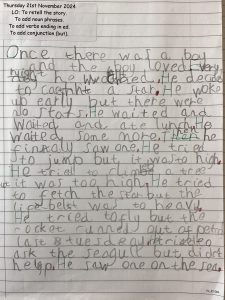 Thursday 21st November 2024
LO: To retell the story.
To add noun phrases.
To add verbs ending in ed.
To add conjunction (but).
Once there was a boy
and the boy loved Every
night he He decide
to catch a star. He woke
up early but there were
no stars. He waited and
waited and ate lunch. He
waited some more. Then he
finally saw one. He tried
to jump but it was to high.
He tried to climb a tree
but it was too high. He tried
to fetch the star but the
belt was to heavy.
He tried to fly but the
rocket runned out of petrol
last tuesday.
ask the seagull but didn't
help. He saw one on the sea.